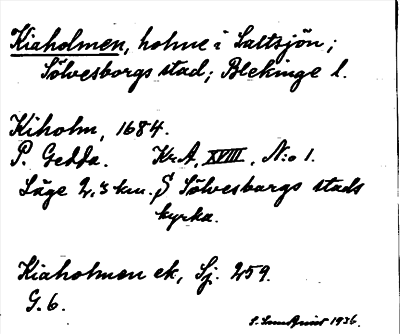 Kiaholmen, holme i Saltsjön;
Sölvesborgs stad; Blekinge l.
Kiholm, 1684.
P. Gedda. Kr.A. XVIII. N:o 1.
Läge 2,3 km. S Sölvesborgs stads
kyrka.
Kiaholmen ek, Sj. 259.
G. 6.
1936.